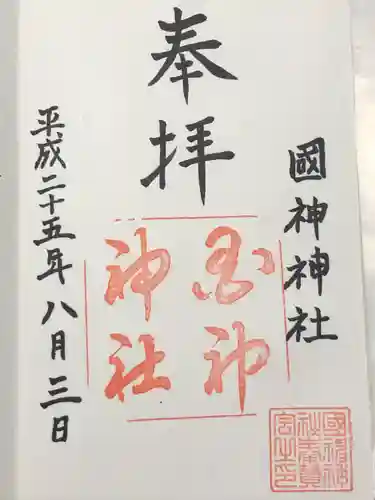 奉拝
國神神社
國神
神社
平成二十五年八月三日